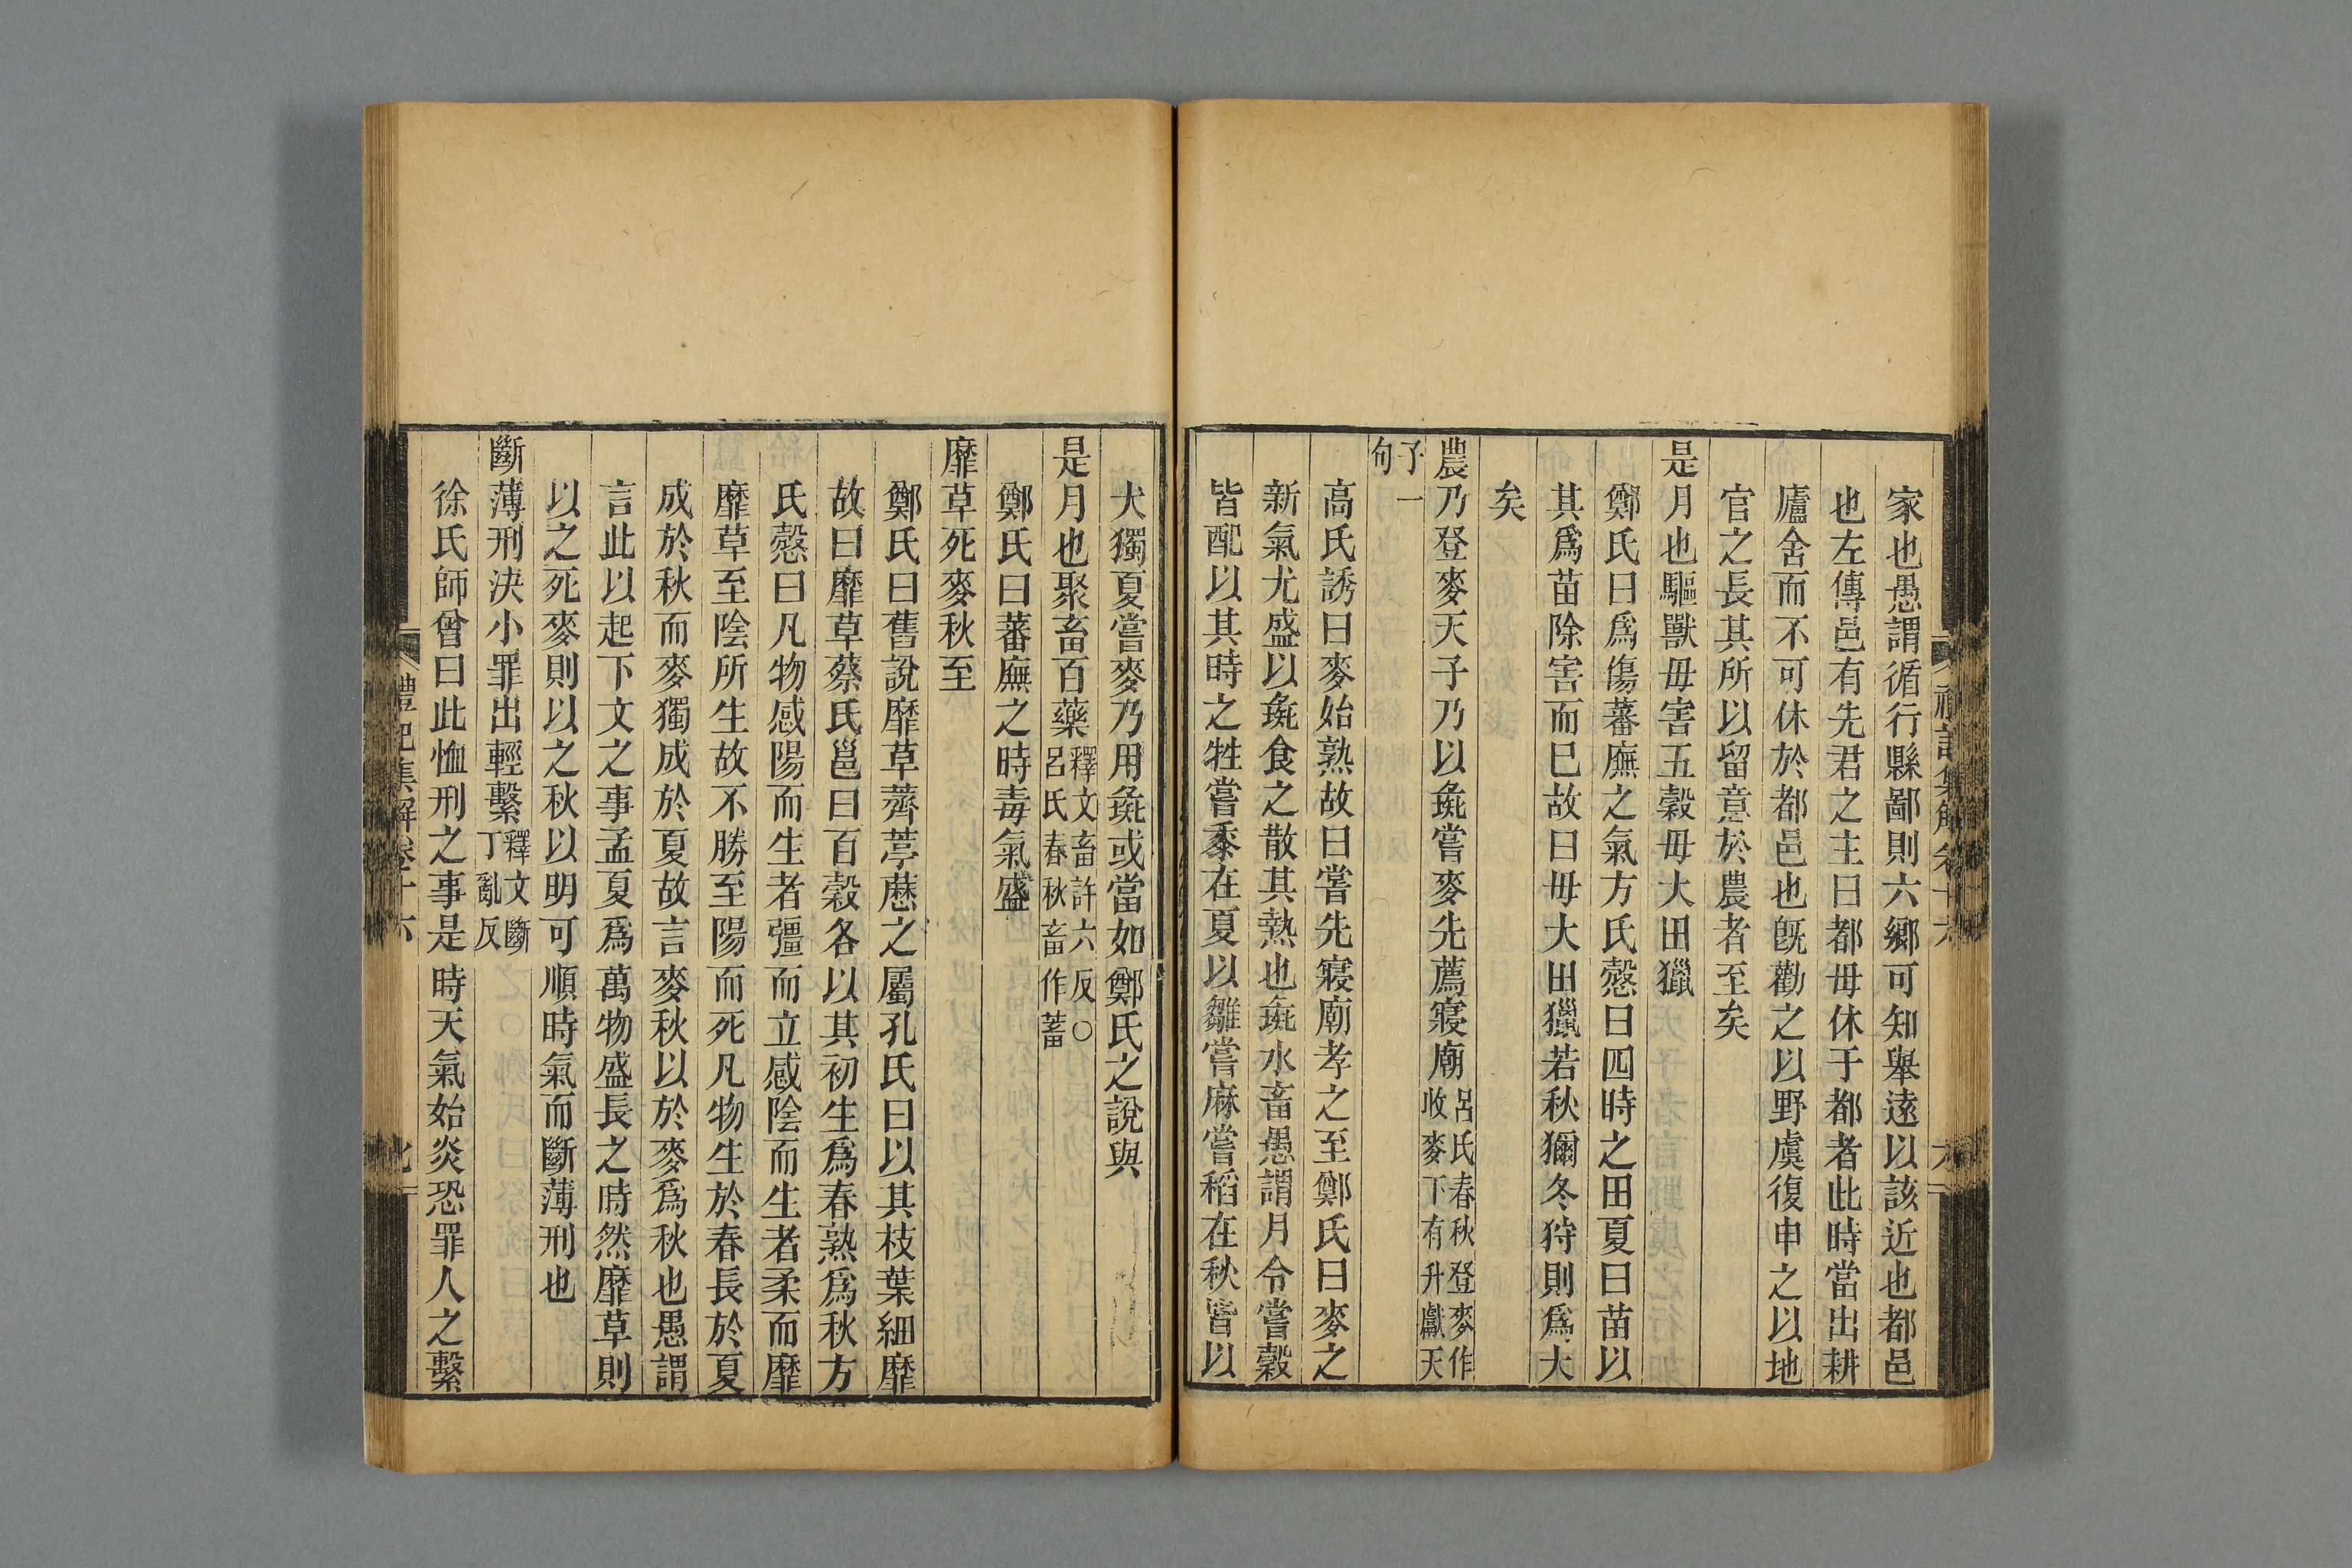 家也愚謂循行縣鄙則六鄉可知舉遠以該近也都邑
也左傳邑有先君之主曰都毋休于都者此時當出耕
廬舍而不可休於都邑也旣勸之以野虞復申之以地
官之長其所以留意於農者至矣
是月也驅獸毋害五穀毋大田獵
鄭氏曰爲傷蕃廡之氣方氏慤曰四時之田夏曰苗以
其爲苗除害而巳故曰毋大田獵若秋獮冬狩則爲大
矣
農乃登麥天子乃以彘嘗麥先薦寢廟呂氏春秋登麥作收麥下有升獻天
子一句
高氏誘曰麥始熟故曰嘗先寢廟孝之至鄭氏曰麥之
新氣尤盛以彘食之散其熱也彘水畜愚謂月令嘗穀
皆配以其時之牲嘗黍在夏以雛嘗麻嘗稻在秋皆以
犬獨夏嘗麥乃用彘或當如鄭氏之說與
是月也聚畜百藥釋文畜許六反○呂氏春秋畜作蓄
鄭氏曰蕃廡之時毒氣盛
靡草死麥秋至
鄭氏曰舊說靡草薺葶藶之屬孔氏曰以其枝葉細靡
故曰靡草蔡氏邕曰百穀各以其初生爲春熟爲秋方
氏慤曰凡物感陽而生者彊而立感陰而生者柔而靡
靡草至陰所生故不勝至陽而死凡物生於春長於夏
成於秋而麥獨成於夏故言麥秋以於麥爲秋也愚謂
言此以起下文之事孟夏爲萬物盛長之時然靡草則
以之死麥則以之秋以明可順時氣而斷薄刑也
斷薄刑決小罪出輕繫釋文斷丁亂反
徐氏師曾曰此恤刑之事是時天氣始炎恐罪人之繫
禮記集解卷十六